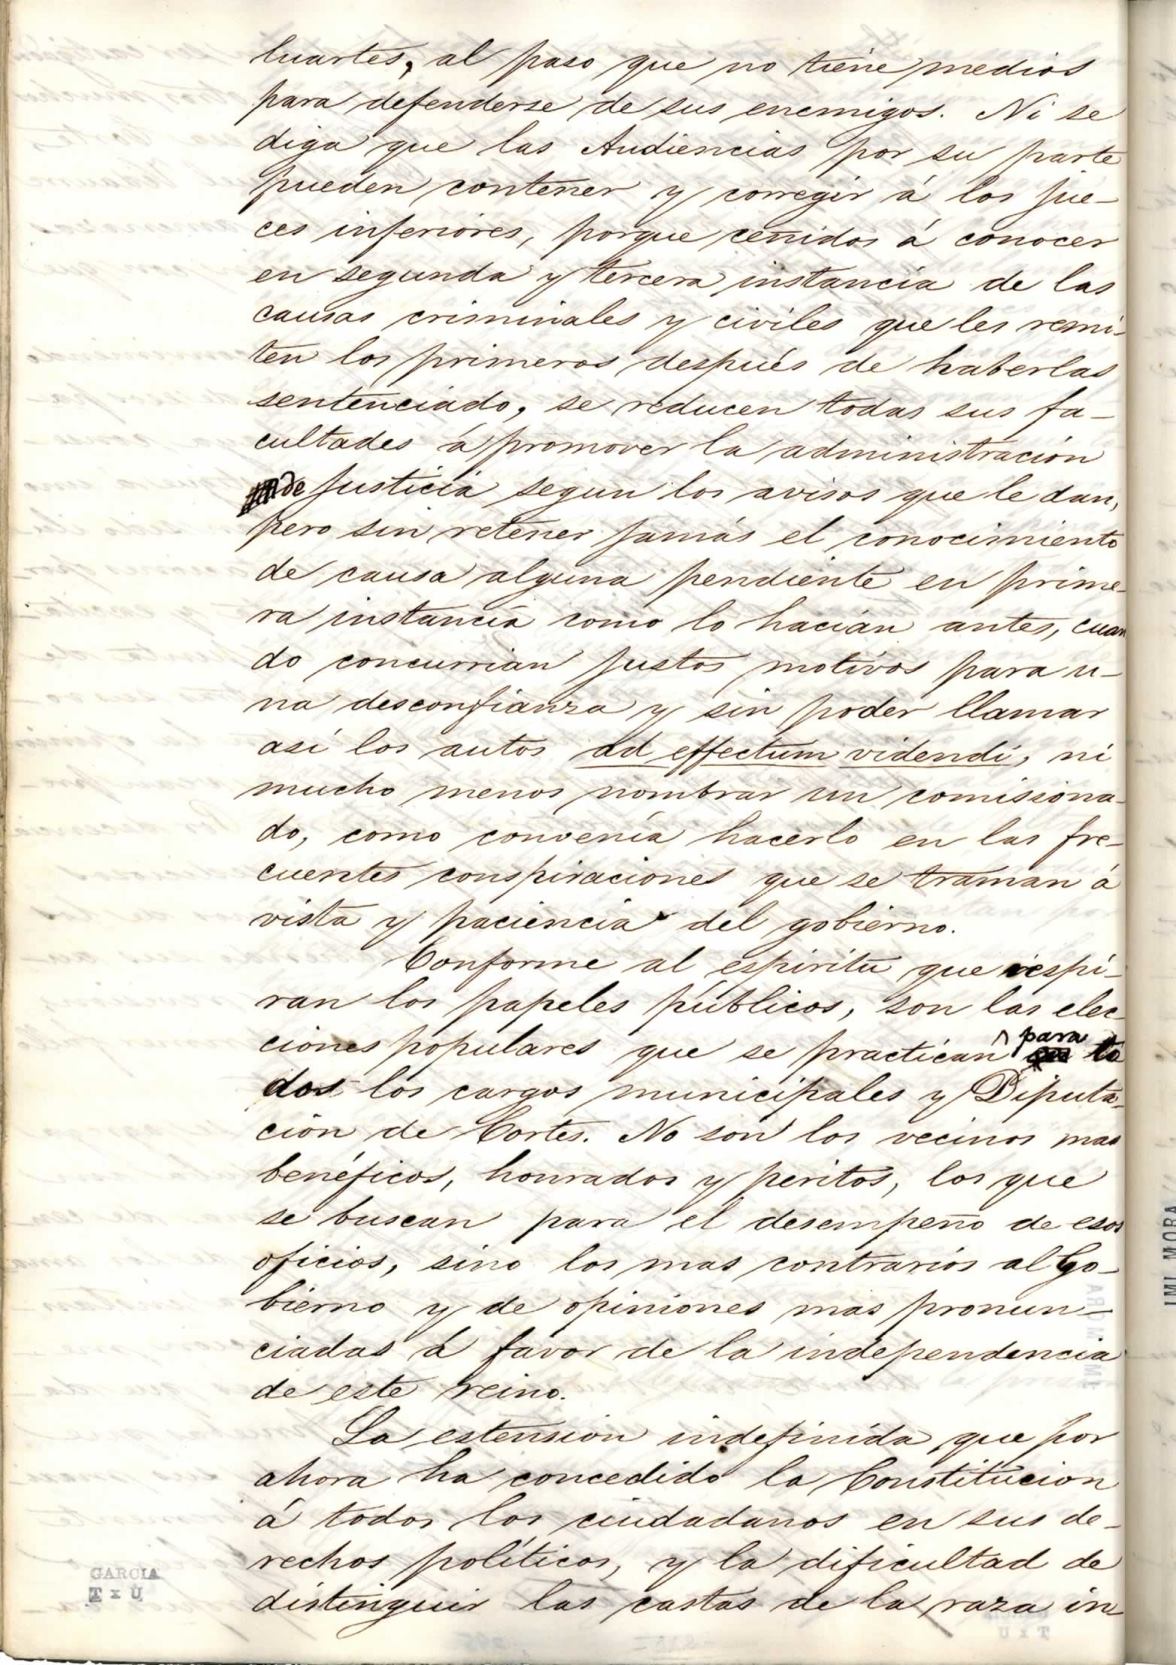 luartes, al paso que no tiene medios
para defenderse de sus enemigos. Ni se
diga que las Audiencias por su parte
pueden contener y corregir á los jue-
ces inferiores, porque ceñidos á conocer
en segunda y tercera instancia de las
causas criminales y civiles que les remi-
ten los primeros después de haberlas
sentenciado, se reducen todas sus fa-
cultades á promover la administración
de Justicia segun los avisos que le dan,
pero sin retener jamás el conocimiento
de causa alguna pendiente en prime-
ra instancia como lo hacian antes, cuan
do concurrian justos motivos para u-
na desconfianza y sin poder llamar
así los autos ad effectum videndi, ni
mucho menos nombrar un comisiona-
do, como convenía hacerlo en las fre-
cuentes conspiraciones que se traman á
vista y paciencia del gobierno.
Conforme al espiritu que respi-
ran los papeles públicos, son las elec-
ciones populares que se practican para to
dos los cargos municipales y Diputa-
ción de Cortes. No son los vecinos mas
benéficos, honrados y peritos, los que
se buscan para el desempeño de esos
oficios, sino los mas contrarios al Go-
bierno y de opiniones mas pronun-
ciadas á favor de la independencia
de este reino.
La estensión indefinida que por
ahora ha concedido la Constitucion
á todos los ciudadanos en sus de-
rechos políticos, y la dificultad de
distinguir las castas de la raza in
GARCIA
T x U